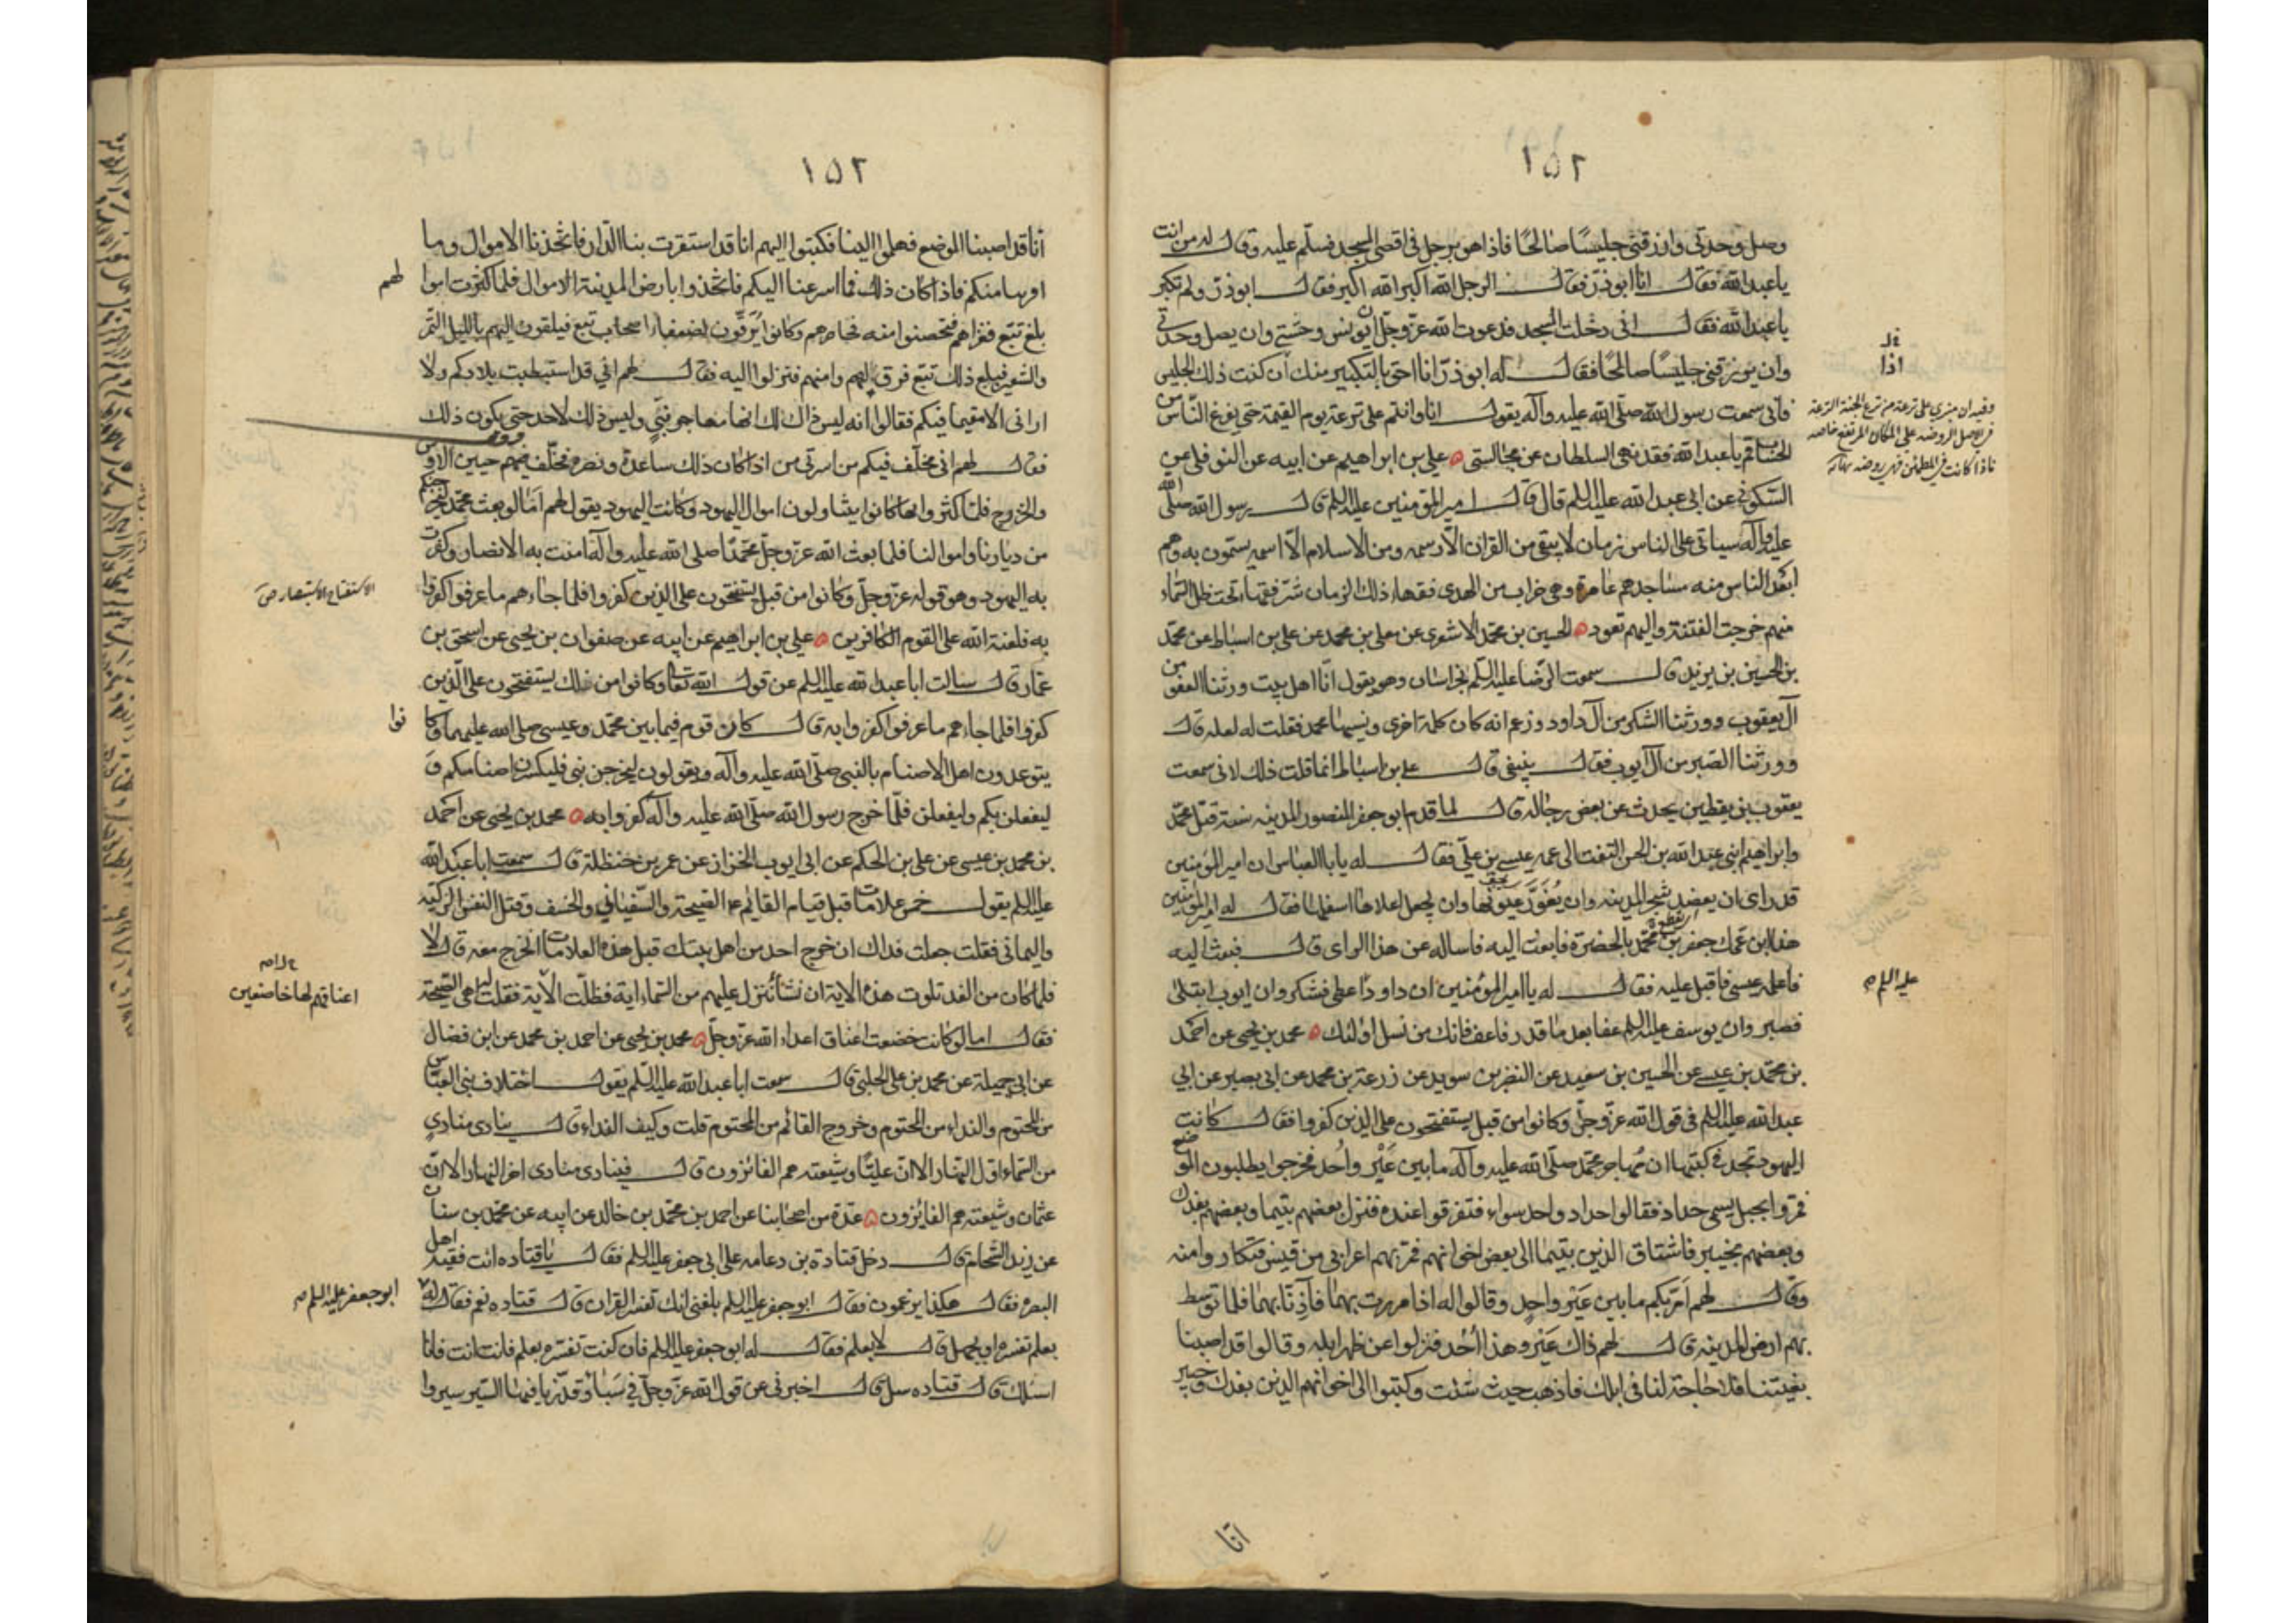 ١٥٢
وصل وحدتي وارزقني جليسًا صالحًا فاذا هو برجل في اقصى المسجد فسلّم عليه وقال له من انت
يا عبد الله فقال انا ابو ذر فقال الرجل الله اكبر الله اكبر فقال ابو ذر ولم تكبر
يا عبد الله فقال اني دخلت المسجد فدعوت الله عز وجل ان يونس وحشتي وان يصل وحدتي
وان يرزقني جليسًا صالحًا فقال له ابو ذر انا احق بالتكبير منك ان كنت ذلك الجليس
فاني سمعت رسول الله صلى الله عليه وآله يقول انا وانتم على ترعة يوم القيمة حتى يفرغ الناس من
الحساب قم يا عبد الله فقد نهى السلطان عن مجالستي ه علي بن ابراهيم عن ابيه عن النوفلي عن
السكوني عن ابي عبد الله عليه السلم قال قال امير المؤمنين عليه السلم قال رسول الله صلى الله
عليه وآله سياتي على الناس زمان لا يبقى من القران الا رسمه ومن الاسلام الا اسمه يسمون به وهم
ابعد الناس منه مساجدهم عامرة وهي خراب من الهدى فقهاء ذلك الزمان شر فقهاء تحت ظل السماء
منهم خرجت الفتنة واليهم تعود ه الحسين بن محمد الاشعري عن معلى بن محمد عن علي بن اسباط عن محمد
بن الحسين بن يزيد قال سمعت الرضا عليه السلم بخراسان وهو يقول انا اهل بيت ورثنا العفو من
آل يعقوب وورثنا الشكر من آل داود وزعم انه كان كلمة اخرى ونسيها محمد فقلت له لعله قال
وورثنا الصبر من آل ايوب فقال ينبغي قال علي بن اسباط انما قلت ذلك لاني سمعت
يعقوب بن يقطين يحدث عن بعض رجاله قال لما قدم ابو جعفر المنصور المدينه سنة قتل محمد
وابراهيم ابني عبد الله بن الحسن التفت الى عمه عيسى بن علي فقال له يابا العباس ان امير المؤمنين
قد راى ان يعضد شجر المدينه وان يعور عيونها وان يجعل اعلاها اسفلها فقال له يا امير المؤمنين
هذا ابن عمك جعفر بن محمد بالحضرة فابعث اليه فاساله عن هذا الراى قال فبعث اليه
فاعلمه عيسى فاقبل عليه فقال له يا امير المؤمنين ان داود اعطي فشكر وان ايوب ابتلى
فصبر وان يوسف عليه السلم عفا بعد ما قدر فاعف فانك من نسل اولئك ه محمد بن يحيى عن احمد
بن محمد بن عيسى عن الحسين بن سعيد عن النضر بن سويد عن زرعة بن محمد عن ابي بصير عن ابي
عبد الله عليه السلم في قول الله عز وجل وكانوا من قبل يستفتحون على الذين كفروا فقال كانت
اليهود تجد في كتبها ان مهاجر محمد صلى الله عليه وآله ما بين عير واحد فخرجوا يطلبون الموضع
فمروا بجبل يسمى حداد فقالوا حداد واحد سواء فتفرقوا عنده فنزل بعضهم بتيما وبعضهم بفدك
وبعضهم بخيبر فاشتاق الذين بتيما الى بعض اخوانهم فمر بهم اعرابي من قيس فتكاروا منه
وقال لهم امر بكم ما بين عير واحد وقالوا له اذا مررت بهما فآذنا بهما فلما توسط
بهم ارض المدينه قال لهم ذاك عير وهذا احد فنزلوا عن ظهر ابله وقالوا قد اصبنا
بغيتنا فلا حاجة لنا في ابلك فاذهب حيث شئت وكتبوا الى اخوانهم الذين بفدك وخيبر
اذا
وفيه ان منبري على ترعة من ترع الجنة الترعة
في الاصل الروضه على المكان المرتفع خاصه
فاذا كانت في المطمئن فهي روضه
عليه السلم
انا
١٥٢
انا قد اصبنا الموضع فهلموا الينا فكتبوا اليهم انا قد استقرت بنا الدار فاتخذنا الاموال وما
اقربنا منكم فاذا كان ذلك فما اسرعنا اليكم فاتخذوا بارض المدينة الاموال فلما كثرت اموالهم
بلغ تبع فغزاهم فتحصنوا منه فحاصرهم وكانوا يرقون لضعفاء اصحاب تبع فيلقون اليهم بالليل التمر
والشعير فبلغ ذلك تبع فرق لهم وامنهم فنزلوا اليه فقال لهم اني قد استطبت بلادكم ولا
اراني الا مقيما فيكم فقالوا انه ليس ذاك لك انها مهاجر نبي وليس ذلك لاحد حتى يكون ذلك
فقال لهم اني مخلف فيكم من اسرتي من اذا كان ذلك ساعده ونصره فخلف فيهم حيين الاوس
والخزرج فلما كثروا بها كانوا يتناولون اموال اليهود وكانت اليهود يقول لهم اما لو بعث محمد لنخرجنكم
من ديارنا واموالنا فلما بعث الله عز وجل محمدا صلى الله عليه وآله آمنت به الانصار وكفرت
به اليهود وهو قوله عز وجل وكانوا من قبل يستفتحون على الذين كفروا فلما جاءهم ما عرفوا كفروا
به فلعنة الله على القوم الكافرين ه علي بن ابراهيم عن ابيه عن صفوان بن يحيى عن اسحق بن
عمار قال سالت ابا عبد الله عليه السلم عن قول الله تعالى وكانوا من قبل يستفتحون على الذين
كفروا فلما جاءهم ما عرفوا كفروا به قال كان قوم فيما بين محمد وعيسى صلى الله عليهما وكانوا
يتوعدون اهل الاصنام بالنبي صلى الله عليه وآله ويقولون ليخرجن نبي فليكسرن اصنامكم و
ليفعلن بكم وليفعلن فلما خرج رسول الله صلى الله عليه وآله كفروا به ه محمد بن يحيى عن احمد
بن محمد بن عيسى عن علي بن الحكم عن ابي ايوب الخزاز عن عمر بن حنظلة قال سمعت ابا عبد الله
عليه السلم يقول خمس علامات قبل قيام القائم ع الصيحة والسفياني والخسف وقتل النفس الزكية
واليماني فقلت جعلت فداك ان خرج احد من اهل بيتك قبل هذه العلامات انخرج معه قال لا
فلما كان من الغد تلوت هذه الاية ان نشا ننزل عليهم من السماء اية فظلت الآية فقلت له اهي الصيحة
فقال اما لو كانت خضعت اعناق اعداء الله عز وجل ه محمد بن يحيى عن احمد بن محمد عن ابن فضال
عن ابي جميلة عن محمد بن علي الحلبي قال سمعت ابا عبد الله عليه السلم يقول اختلاف بني العباس
من المحتوم والنداء من المحتوم وخروج القائم من المحتوم قلت وكيف النداء قال ينادي منادي
من السماء اول النهار الا ان عليا وشيعته هم الفائزون قال فينادي منادي اخر النهار الا ان
عثمان وشيعته هم الفائزون ه عدة من اصحابنا عن احمد بن محمد بن خالد عن ابيه عن محمد بن سنان
عن زيد الشحام قال دخل قتادة بن دعامه على ابي جعفر عليه السلم فقال يا قتاده انت فقيه اهل
البصره فقال هكذا يزعمون فقال ابو جعفر عليه السلم بلغني انك تفسر القران قال قتاده نعم فقال له
بعلم تفسره ام بجهل قال لا بعلم فقال له ابو جعفر عليه السلم فان كنت تفسره بعلم فانت انت فانا
اسئلك قال قتاده سل قال اخبرني عن قول الله عز وجل في سبا وقدرنا فيها السير سيروا
الاستفتاح الاستنصار ص
اعناقهم لها خاضعين
ابو جعفر عليه السلم